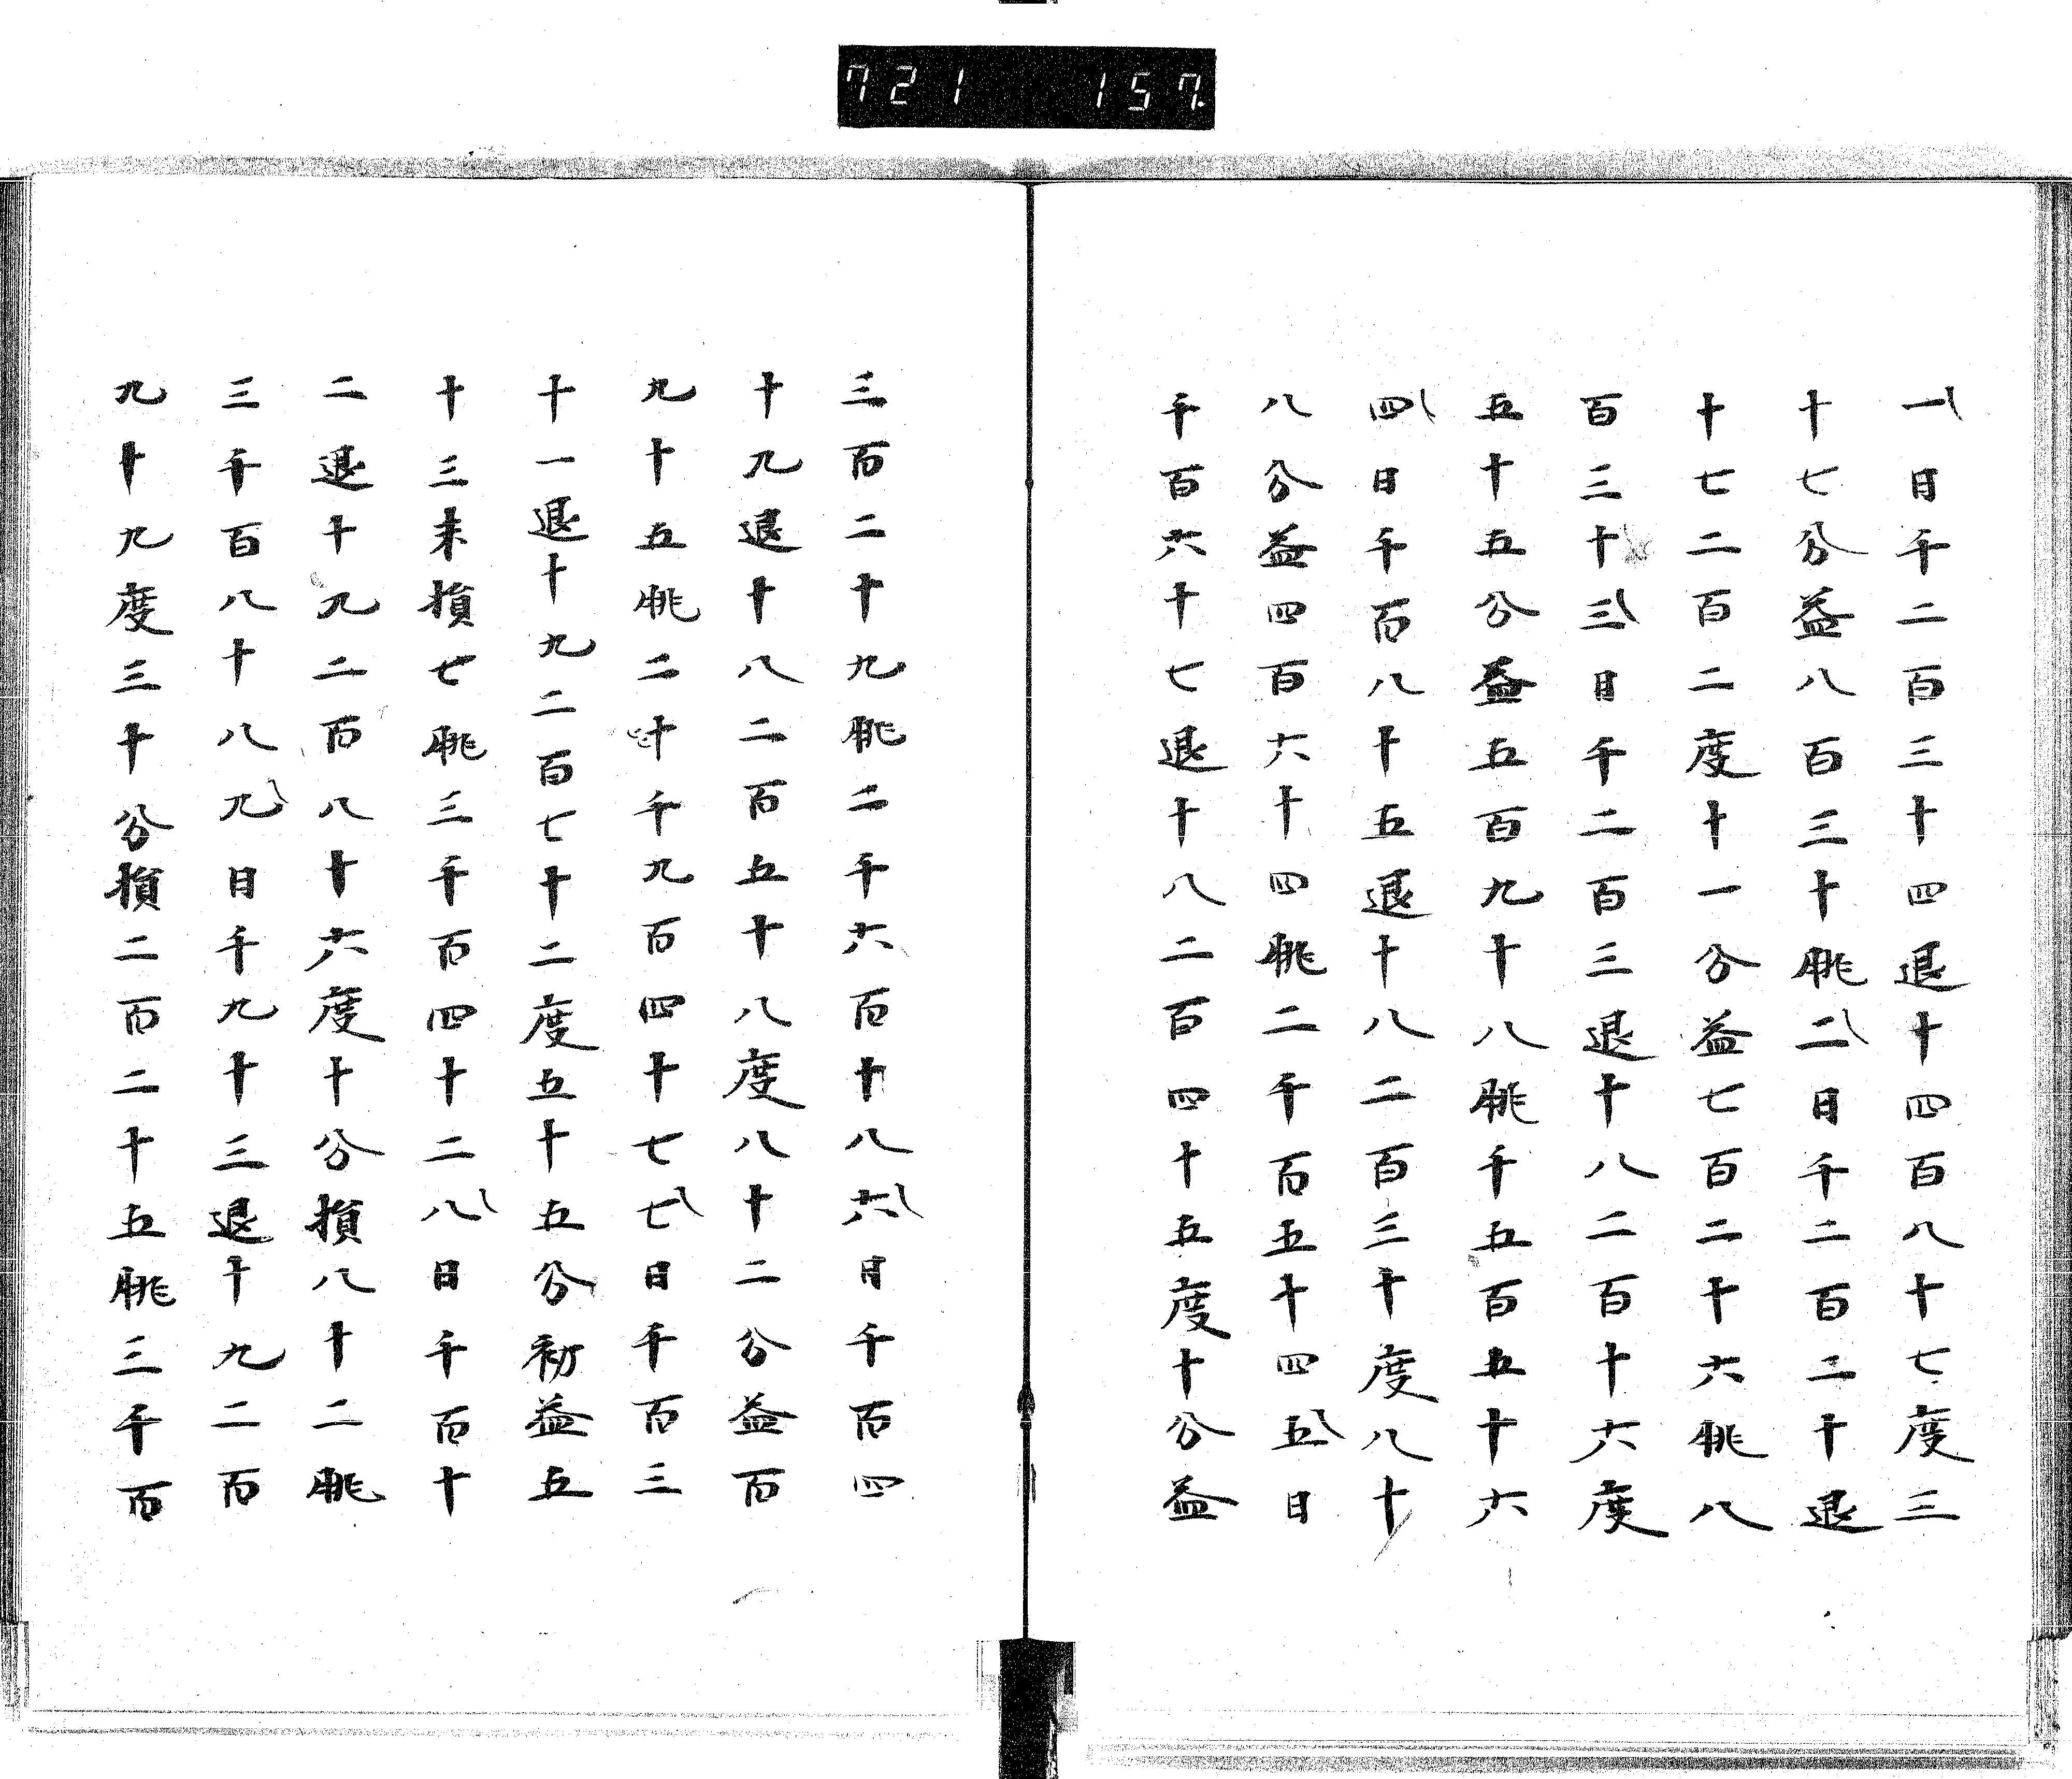 721 157
一日千二百三十四退十四百八十七度三
十七分益八百三十朓二日千二百二十退
十七二百二度十一分益七百二十六朓八
百三十三日千二百三退十八二百十六度
五十五分益五百九十八朓千五百五十六
四日千百八十五退十八二百三十度八十
八分益四百六十四朓二千百五十四五日
千百六十七退十八二百四十五度十分益
三百二十九朓二千六百十八六日千百四
十九退十八二百五十八度八十二分益百
九十五朓二十千九百四十七七日千百三
十一退十九二百七十二度五十五分初益五
十三末損七朓三千百四十二八日千百十
二退十九二百八十六度十分損八十二朓
三千百八十八九日千九十三退十九二百
九十九度三十分損二百二十五朓三千百